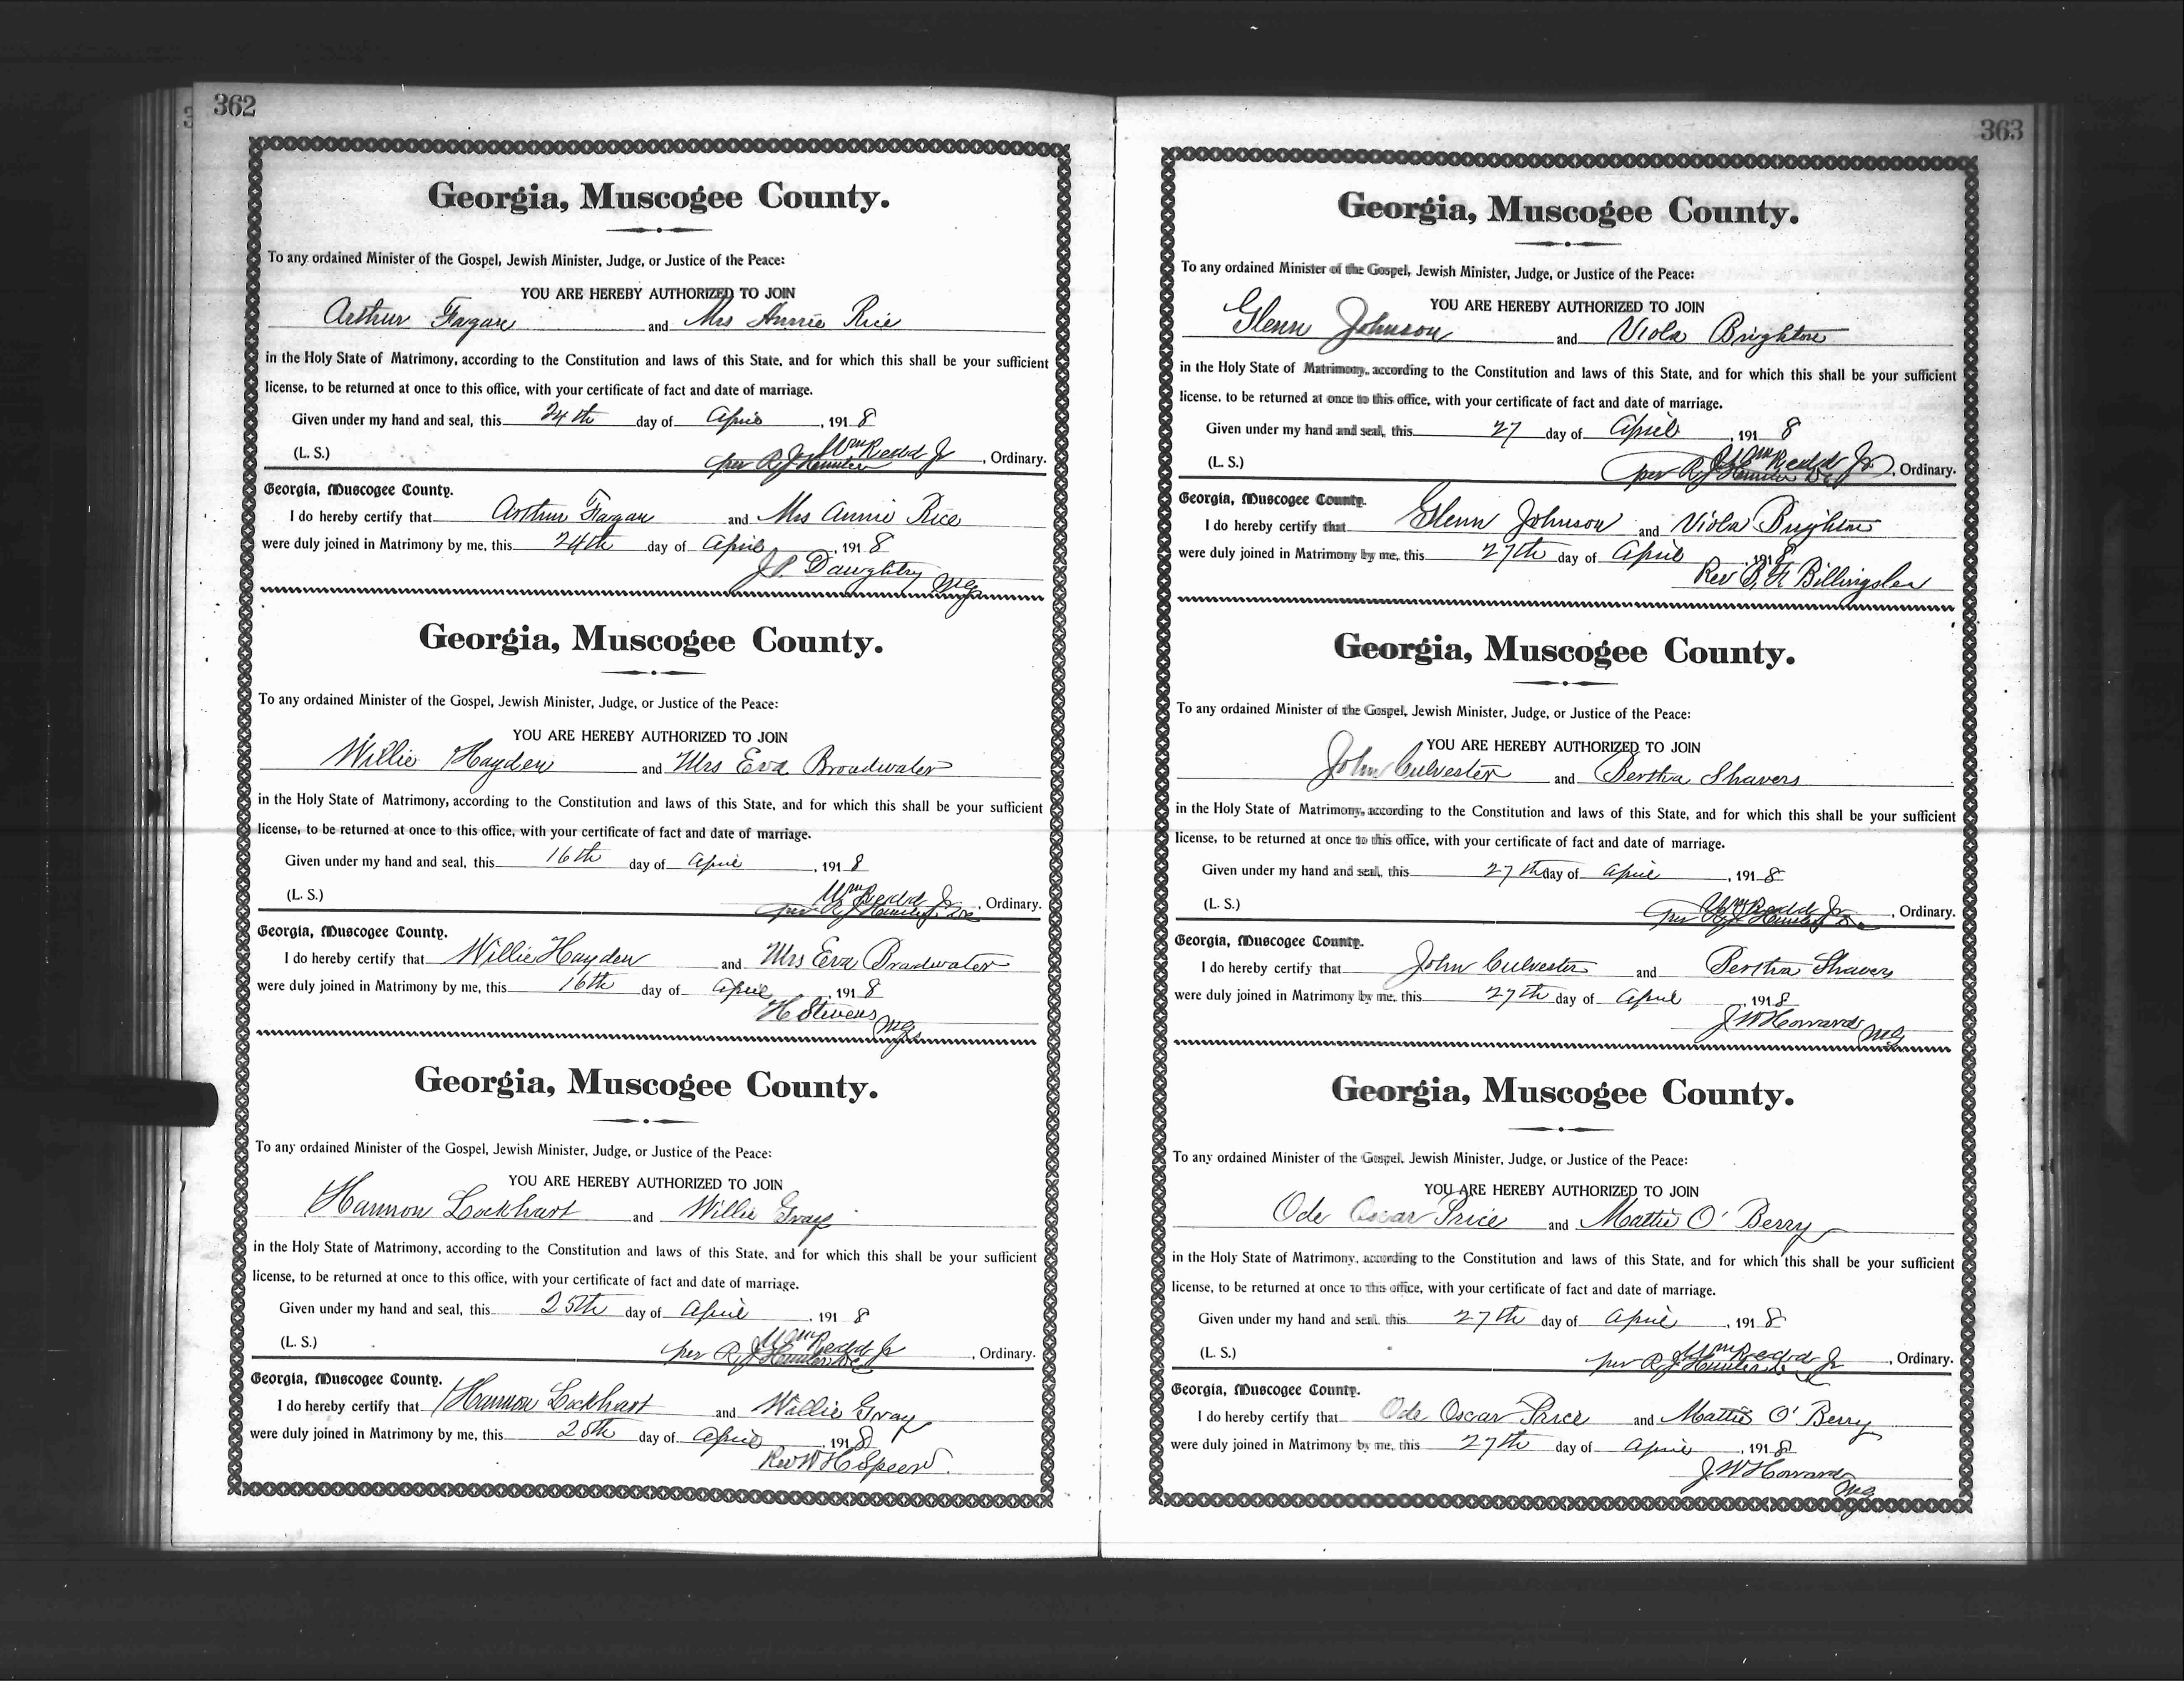 362
Georgia, Muscogee County.
To any ordained Minister of the Gospel, Jewish Minister, Judge, or Justice of the Peace:
YOU ARE HEREBY AUTHORIZED TO JOIN
Arthur Fagan and Mrs Annie Rice
in the Holy State of Matrimony, according to the Constitution and laws of this State, and for which this shall be your sufficient
license, to be returned at once to this office, with your certificate of fact and date of marriage.
Given under my hand and seal, this 24th day of April, 1918
(L. S.) Wm Redd Jr, Ordinary.
per R J Hunter
Georgia, Muscogee County.
I do hereby certify that Arthur Fagan and Mrs Annie Rice
were duly joined in Matrimony by me, this 24th day of April, 1918
J. P. Daughtry MG
Georgia, Muscogee County.
To any ordained Minister of the Gospel, Jewish Minister, Judge, or Justice of the Peace:
YOU ARE HEREBY AUTHORIZED TO JOIN
Willie Hayden and Mrs Eva Broadwater
in the Holy State of Matrimony, according to the Constitution and laws of this State, and for which this shall be your sufficient
license, to be returned at once to this office, with your certificate of fact and date of marriage.
Given under my hand and seal, this 16th day of April, 1918
(L. S.) Wm Redd Jr, Ordinary.
per R J Hunter
Georgia, Muscogee County.
I do hereby certify that Willie Hayden and Mrs Eva Broadwater
were duly joined in Matrimony by me, this 16th day of April, 1918
H Stivens MG
Georgia, Muscogee County.
To any ordained Minister of the Gospel, Jewish Minister, Judge, or Justice of the Peace:
YOU ARE HEREBY AUTHORIZED TO JOIN
Harmon Lockhart and Willie Gray
in the Holy State of Matrimony, according to the Constitution and laws of this State, and for which this shall be your sufficient
license, to be returned at once to this office, with your certificate of fact and date of marriage.
Given under my hand and seal, this 25th day of April, 1918
(L. S.) Wm Redd Jr, Ordinary.
per R J Hunter
Georgia, Muscogee County.
I do hereby certify that Harmon Lockhart and Willie Gray
were duly joined in Matrimony by me, this 25th day of April, 1918
Rev W H Speer
363
Georgia, Muscogee County.
To any ordained Minister of the Gospel, Jewish Minister, Judge, or Justice of the Peace:
YOU ARE HEREBY AUTHORIZED TO JOIN
Glenn Johnson and Viola Brighton
in the Holy State of Matrimony, according to the Constitution and laws of this State, and for which this shall be your sufficient
license, to be returned at once to this office, with your certificate of fact and date of marriage.
Given under my hand and seal, this 27 day of April, 1918
(L. S.) Wm Redd Jr, Ordinary.
per R J Hunter
Georgia, Muscogee County.
I do hereby certify that Glenn Johnson and Viola Brighton
were duly joined in Matrimony by me, this 27th day of April, 1918
Rev B. F. Billingslea
Georgia, Muscogee County.
To any ordained Minister of the Gospel, Jewish Minister, Judge, or Justice of the Peace:
YOU ARE HEREBY AUTHORIZED TO JOIN
John Culvester and Bertha Shavers
in the Holy State of Matrimony, according to the Constitution and laws of this State, and for which this shall be your sufficient
license, to be returned at once to this office, with your certificate of fact and date of marriage.
Given under my hand and seal, this 27th day of April, 1918
(L. S.) Wm Redd Jr, Ordinary.
per R J Hunter
Georgia, Muscogee County.
I do hereby certify that John Culvester and Bertha Shavers
were duly joined in Matrimony by me, this 27th day of April, 1918
J W Howard MG
Georgia, Muscogee County.
To any ordained Minister of the Gospel, Jewish Minister, Judge, or Justice of the Peace:
YOU ARE HEREBY AUTHORIZED TO JOIN
Ode Oscar Price and Mattie O'Berry
in the Holy State of Matrimony, according to the Constitution and laws of this State, and for which this shall be your sufficient
license, to be returned at once to this office, with your certificate of fact and date of marriage.
Given under my hand and seal, this 27th day of April, 1918
(L. S.) Wm Redd Jr, Ordinary.
per R J Hunter
Georgia, Muscogee County.
I do hereby certify that Ode Oscar Price and Mattie O'Berry
were duly joined in Matrimony by me, this 27th day of April, 1918
J W Howard MG